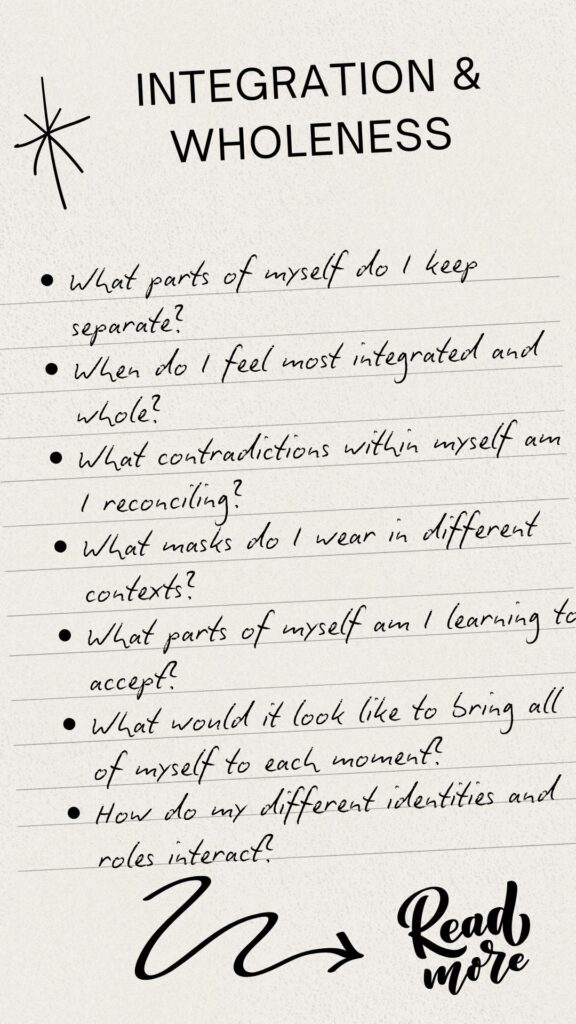 INTEGRATION &
WHOLENESS
• What parts of myself do I keep
separate?
• When do I feel most integrated and
whole?
• What contradictions within myself am
I reconciling?
• What masks do I wear in different
contexts?
• What parts of myself am I learning to
accept?
• What would it look like to bring all
of myself to each moment?
• How do my different identities and
roles interact?
Read
more